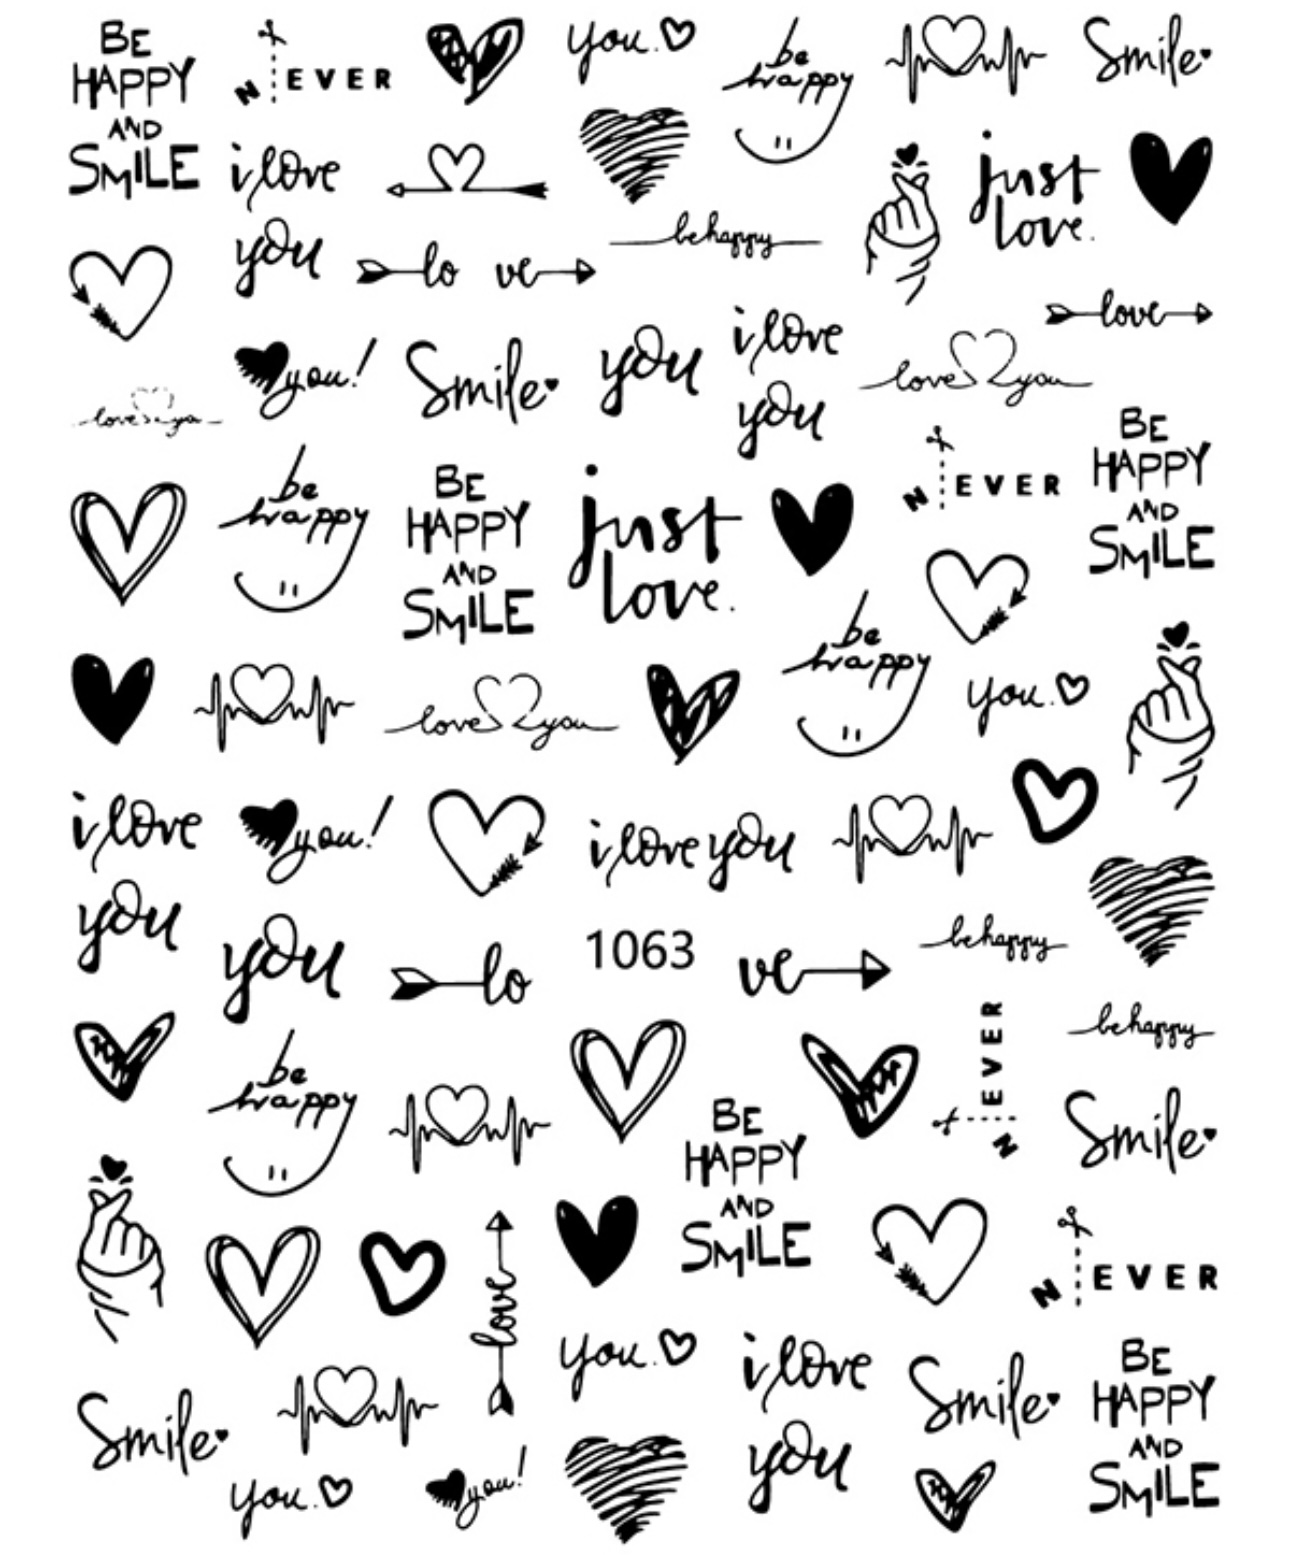 BE
HAPPY
AND
SMILE
N EVER
you.
be
happy
Smile
i love
you
just
love.
be happy
lo ve
love
you!
Smile
you
i love
you
love you
love you
N EVER
BE
HAPPY
AND
SMILE
be
happy
BE
HAPPY
AND
SMILE
just
love.
be
happy
love you
you.
i love
you
you!
i love you
you
lo
1063
ve
be happy
be happy
N EVER
be
happy
BE
HAPPY
AND
SMILE
Smile
love
N EVER
you.
i love
you
Smile
BE
HAPPY
AND
SMILE
Smile
you.
you!